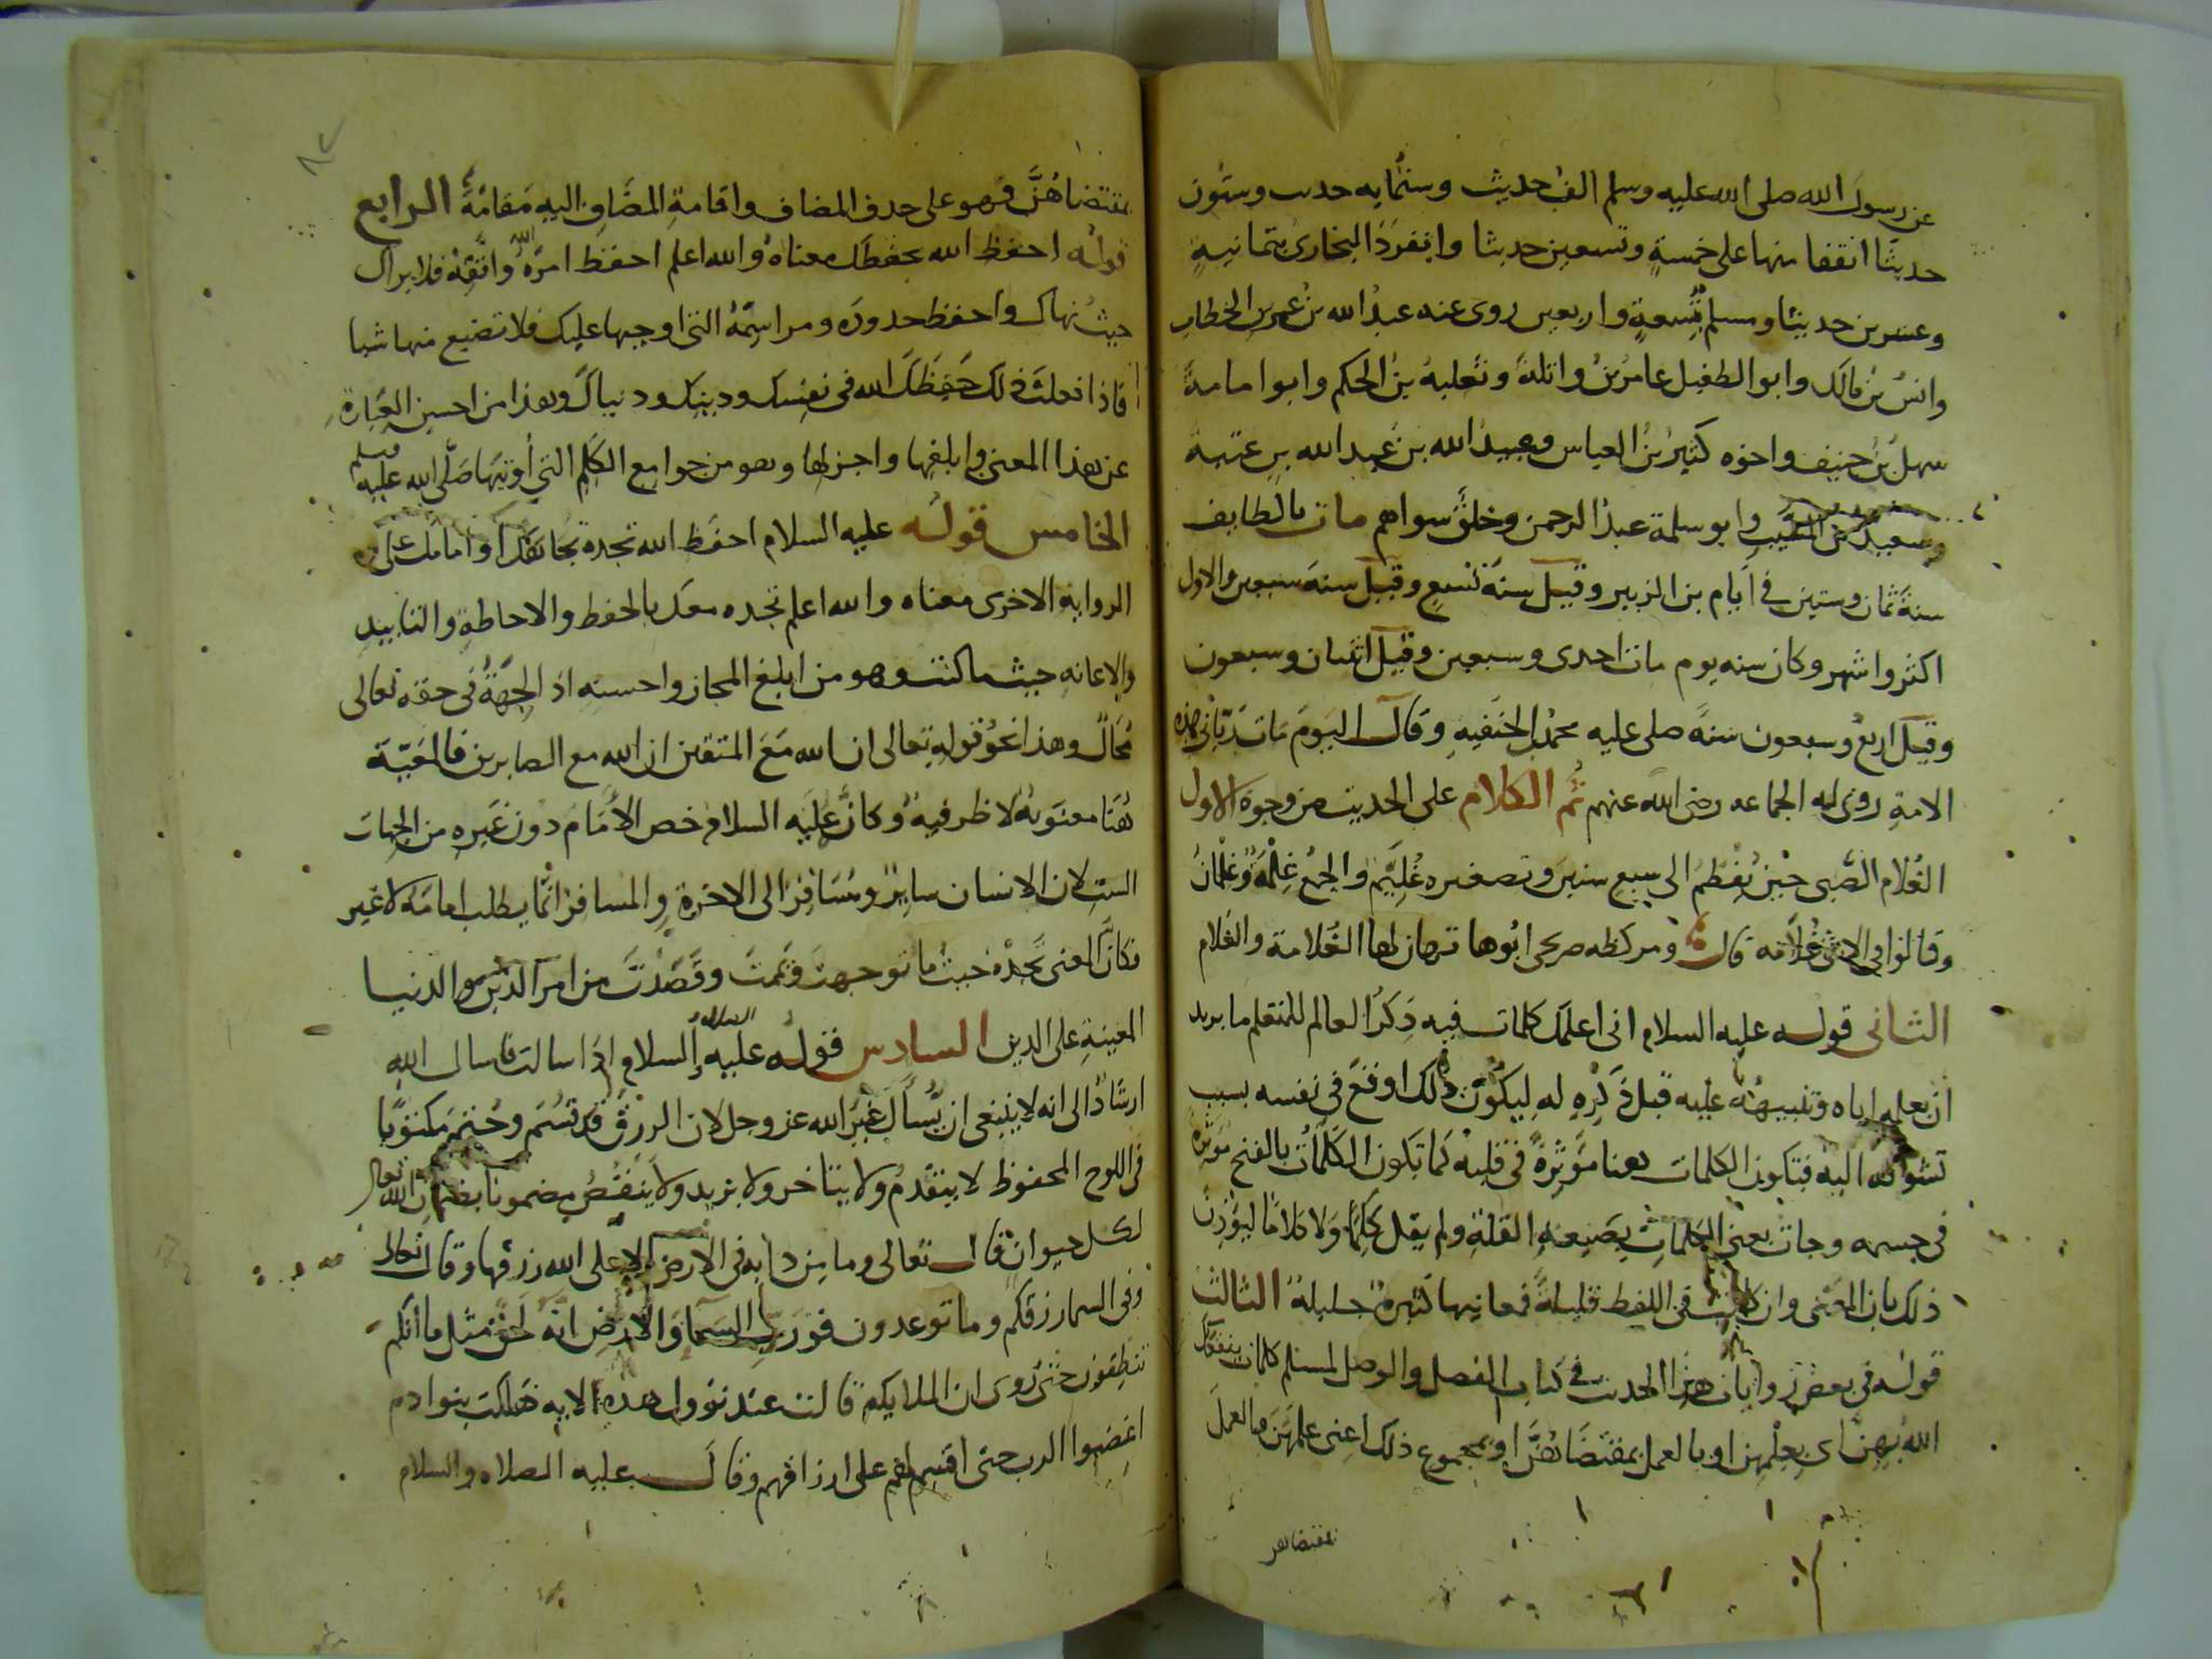 عن رسول الله صلى الله عليه وسلم الف حديث وستمايه حدىث وستون
حديثًا اتفقا منها على خمسةٍ وتسعين حديثا وانفرَدَ البخارى بثمانيةٍ
وعشرين حديثا ومسلم بتسعةٍ واربعين روى عنه عبدُ الله بنُ عمر بن الخطاب
وانسُ بنُ مالك وابو الطفيل عامرُ بنُ واثلةَ وثعلبةُ بنُ الحكم وابوا مامةَ
سهلُ بنُ حنيف واخوه كثيرُ بنُ العباس وعبيدُ الله بنُ عبد الله بنِ عتبة
وسعيد بن المسيب وابو سلمة عبدُ الرحمن وخلقٌ سواهم مات بالطايف
سنةَ ثمان وستين في ايام بن الزبير وقيل سنةَ تسعٍ وقيل سنةَ سبعين والاول
اكثر واشهر وكان سنه يوم مات احدى وسبعين وقيل اثنتان وسبعون
وقيل اربعٌ وسبعون سنةً صلى عليه محمدُ بن الحنفيهِ وقال اليومَ مات ربّانيُ هذه
الامةِ روى له الجماعه رضى الله عنهم ثُم الكلام على الحديث من وجوه الاول
الغُلام الصَّبى حينَ يُفْطَمُ الى سبع سنين وتصغيره غُلَيِّم والجمع غِلْمةٌ وغِلْمانٌ
وقالوا فى الانثى غُلامه قال ومركظه صريحى ابُوها تهان لها الغُلامة والغلام
الثانى قوله عليه السلام انى اعلمك كلمات فيه ذِكرُ العالم للمتعلم ما يريد
ان يعلمه اياه وتنبيهُه عليه قبل ذكرِهِ له ليكُون ذلك اوقعَ فى نفسه بسبب
تشوقه اليه فتكون الكلمات هنا مؤثرةً فى قلبه كما تكون الكَلَماتُ بالفتح مؤثره
فى جسمه وجات يعنى الكلماتِ بصيغهِ القلة ولم يقل كَلِمًا ولا كلامًا ليؤذِنَ
ذلك بان المعنى وان كانت فى اللفظ قليلةً فمعانيها كثيرةٌ جليلة الثالث
قولُه فى بعض روايات هذا الحديث فى كتاب الفصل والوصل لمسلم كلمات ينفعك
الله بهن اى بعلمهن او بالعمل بمقتضاهُنَّ او بمجموع ذلك اعنى علمَهن والعملَ
بمقتضاهن
بمقتضاهُنَّ فهو على حذف المضاف واقامةِ المضاف اليهِ مقامَهُ الرابع
قولُه احفظ الله يحفظك معناهُ والله اعلم احفظ امرَ اللهِ واتَّقِهْ فلا يراك
حيثُ نهاك واحفظ حدودَه ومراسِمَهُ التى اوجبها عليك فلا تضيع منها شيا
فاذا فعلتَ ذلك حَفِظَكَ الله فى نفسك ودينك ودنياك وهذا من احسن العبارة
عن هذا المعنى وابلغها واجزلها وهو من جوامع الكَلِم التى أُوتيَها صلى الله عليه وسلم
الخامس قوله عليه السلام احفظ الله تجده تجاهك او امامك على
الرواية الاخرى معناه والله اعلم تجده معك بالحفظ والاحاطةِ والتاييد
والاعانهِ حيث ما كنت وهو من ابلغ المجاز واحسنِه اذ الجهةُ فى حقه تعالى
مُحالٌ وهذا نحوُ قولهِ تعالى ان الله معَ المتقين ان الله مع الصابرين فالمَعيّة
هُنَا معنوية لا ظرفيةٌ وكانَّ عليَه السلام خص الأمَام دون غيره من الجهات
الست لان الانسان سايرٌ ومُسَافر الى الاخرة والمسافر انما يطلب امامَه لا غير
فكان المعنى تجدْهُ حيثُ ما توجهتَ ويَممتَ وقَصَدْتَ من امر الدين والدنيا
المعينةِ على الدين السادس قولُه عليه السلام اذا سالت فاسال الله
ارشادٌ الى انه لا ينبغى ان يُسأَلَ غيرُ الله عز وجل لان الرزقَ قد قُسِمَ وخُتمَ مكتوبًا
فى اللوح المحفوظ لا يتقدمُ ولا يتاخر ولا يزيد ولا ينقُصُ مضمونا بضمان الله تعالى
لكل حيوان قال تعالى وما من دابه فى الارض الا على الله رزقها وقال تعالى
وفى السما رزقكم وما توعدون فورب السما والارض انه لَحقٌ مثل ما انكم
تنطقون حتى رُوى ان الملايكه قالت عند نزول هذه الايه هلكت بنوا دم
اغضبوا الرب حتى اقسم لهم على ارزاقهم وقال عليه الصلاه والسلام